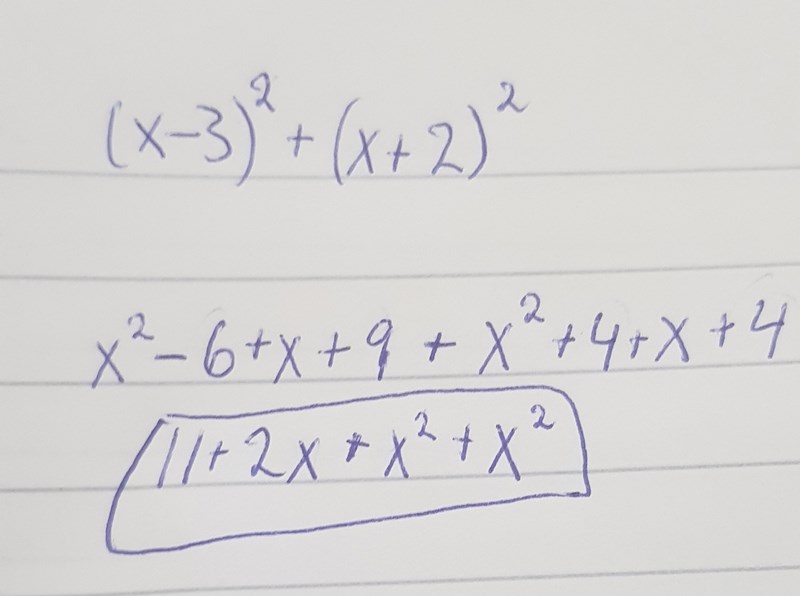 (x-3)² + (x+2)²
x² - 6 + x + 9 + x² + 4 + x + 4
11 + 2x + x² + x²